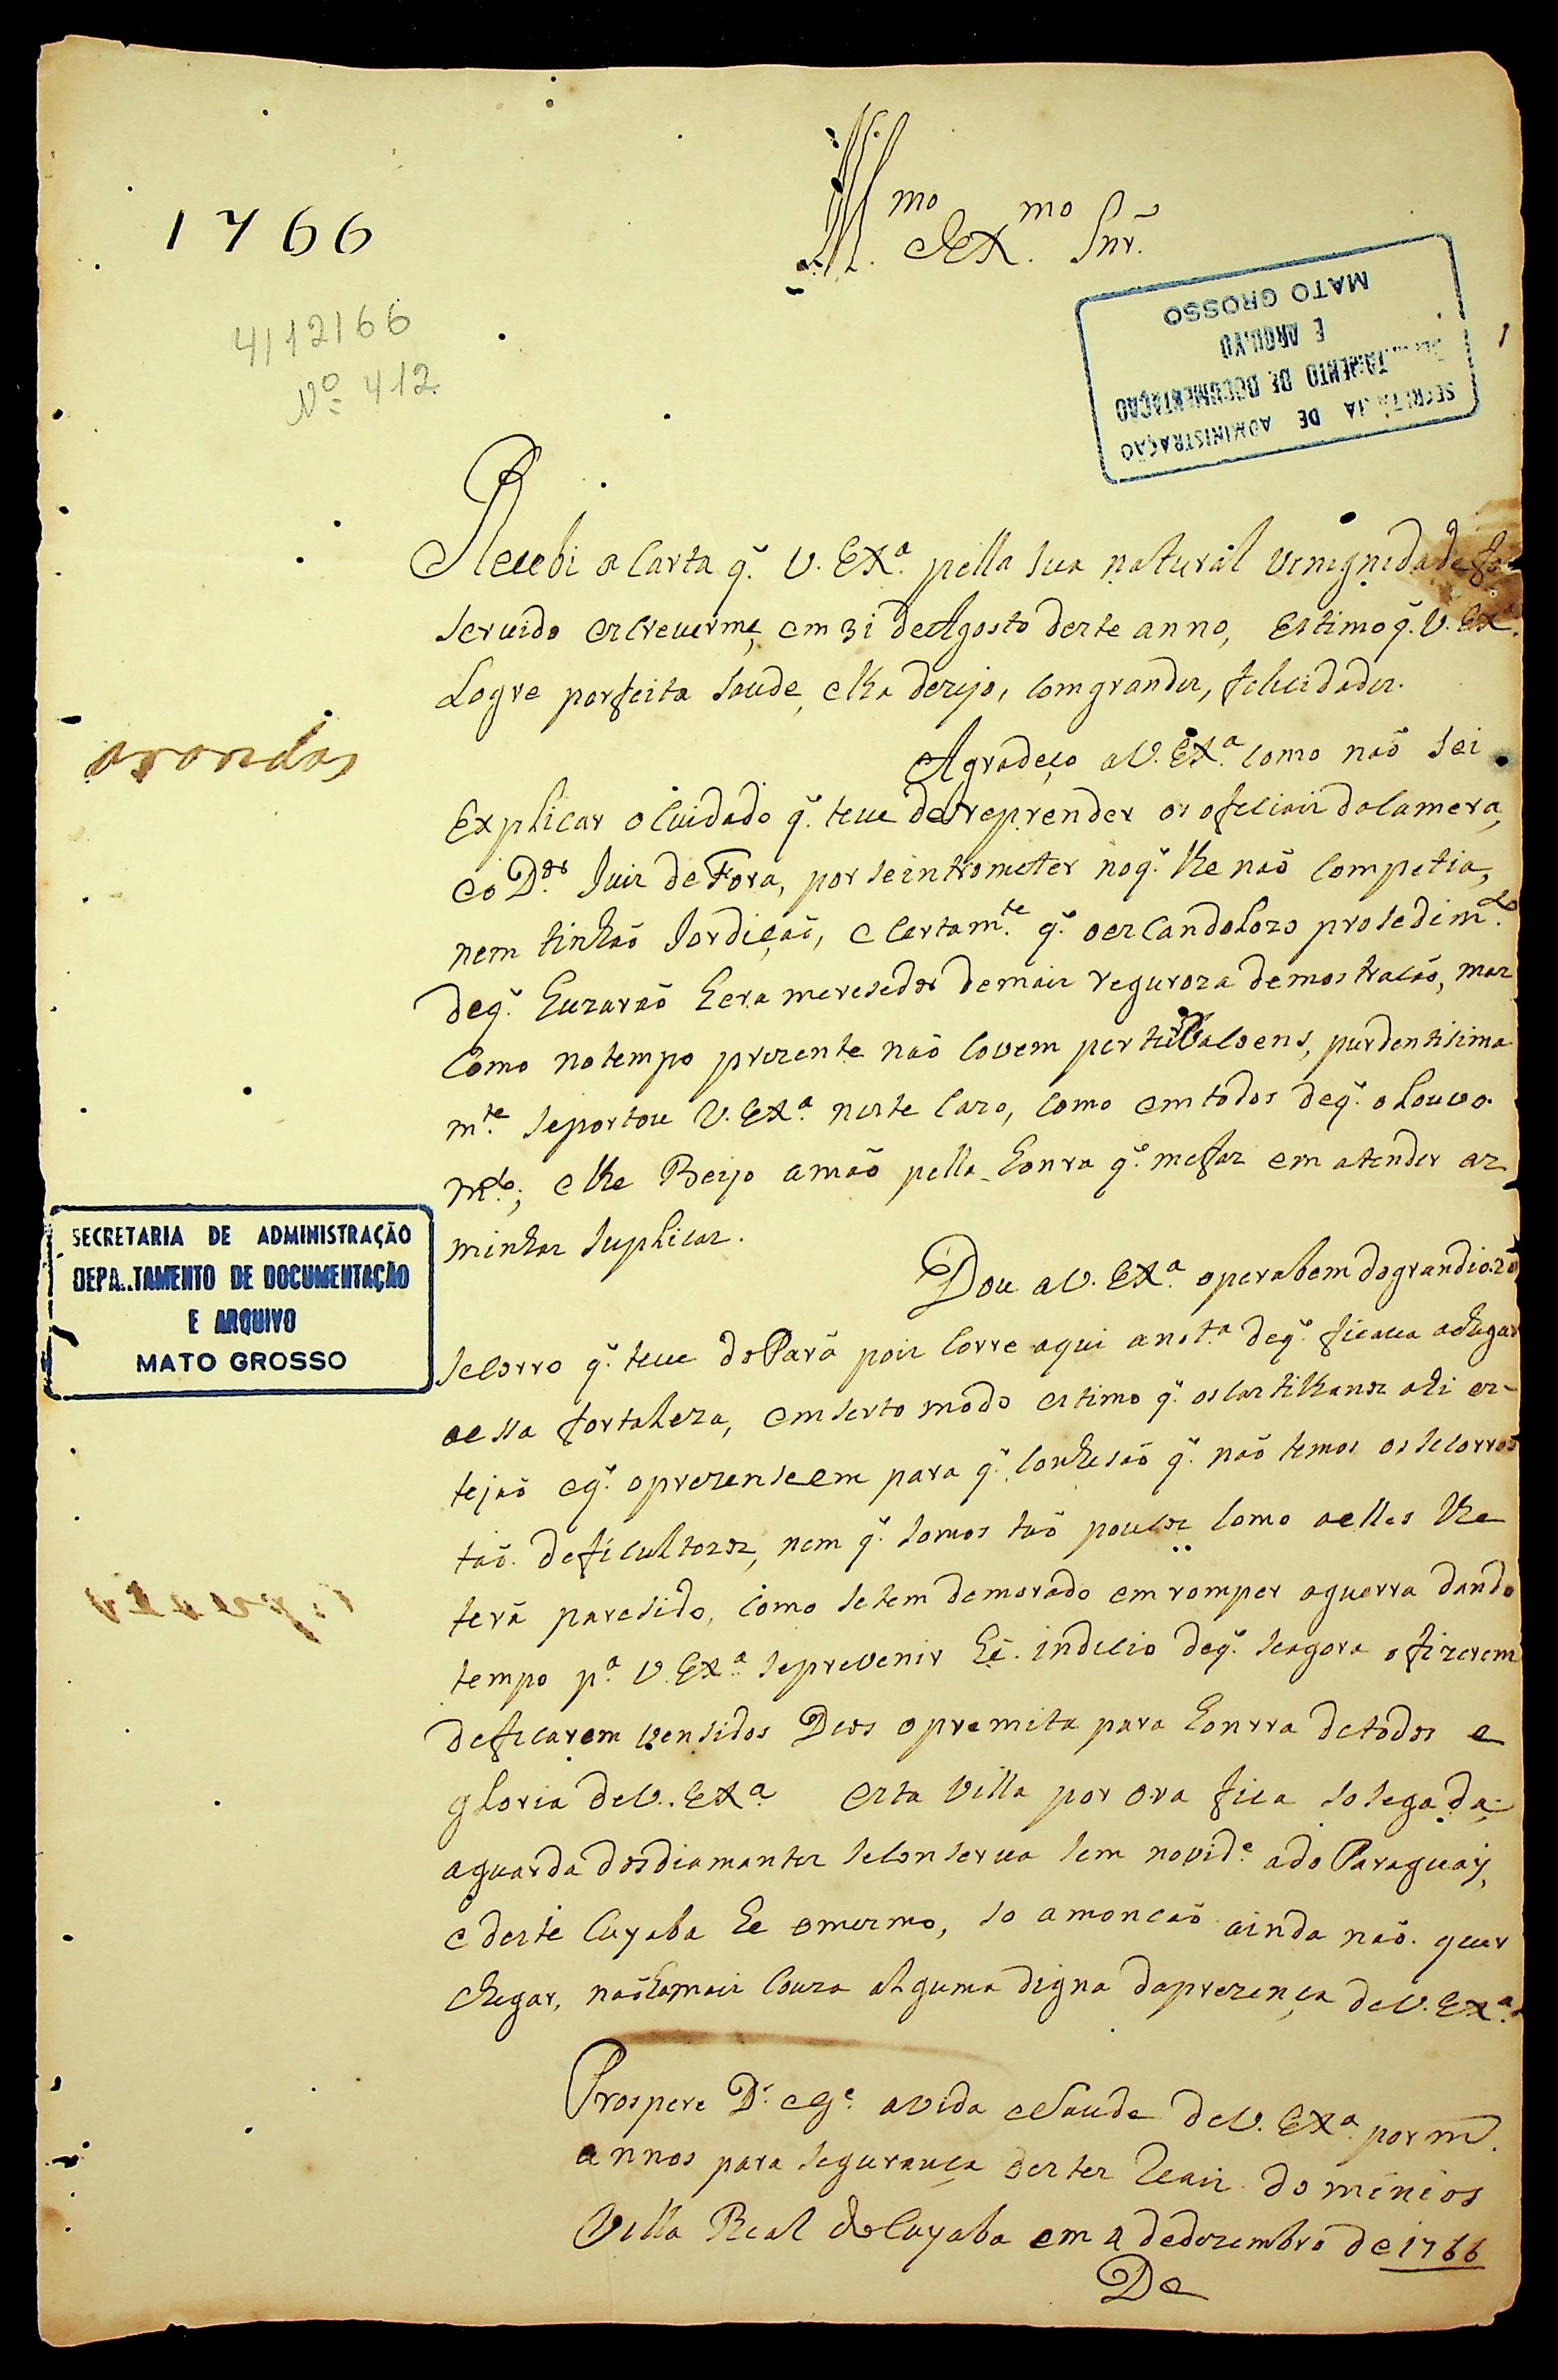 1766
4/12/66
Nº 412
Ill.mo e Ex.mo Snr.
SECRETARIA DE ADMINISTRAÇÃO
DEPA..TAMENTO DE DOCUMENTAÇÃO
E ARQUIVO
MATO GROSSO
1
Recebi a Carta q. V. Ex.a pella sua natural venignidade foi
servido escreverme, em 31 de Agosto deste anno, estimo q. V. Ex.a
Logre porfeita saude, e lha dezejo, com grandes, felicidades.
Agradeço a V. Ex.a como não sei
explicar o cuidado q. teve de reprender os oficiais da Camera,
e o D.or Juis de Fora, por se intrometer no q. lhe não competia,
nem tinhão Jordição, e certam.te q. o escandolozo prosedim.to
de q. huzarão hera meresedor de mais reguroza demostracão, mas
como no tempo prezente não covem perturbacoens, purdentisima
m.te se portou V. Ex.a neste cazo, como em todos de q. o Louvo.
m.to; e lhe Beijo a mão pella honra q. me faz em atender as
minhas suplicas.
Dou a V. Ex.a o perabem do grandiozo
secorro q. teve do Pará pois corre aqui a not.a de q. ficava a chegar
a essa fortaleza, em serto modo estimo q. os castilhanos ahi es-
tejão e q. o prezenseem para q. conhesão q. não temos os secorros
tão deficultozos, nem q. somos tão poucos como a elles lhe
terá paresido, como se tem demorado em romper a guerra dando
tempo p.a V. Ex.a se prevenir hé indicio de q. se agora o fizerem
de ficarem vensidos Deos o premita para honrra de todos e
gloria de V. Ex.a esta Villa por ora fica sosegada
a guarda dos diamantes se conserva sem novid.e a do Paraguay,
e deste Cuyaba he o mesmo, so a moncão ainda não quer
chegar, não ha mais couza alguma digna da prezença de V. Ex.a
Prospere D.s e g.e a vida e saude de V. Ex.a por m.
annos para segurança destes Reais dominios
Villa Real do Cuyaba em 4 de dezembro de 1766
De
SECRETARIA DE ADMINISTRAÇÃO
DEPA..TAMENTO DE DOCUMENTAÇÃO
E ARQUIVO
MATO GROSSO